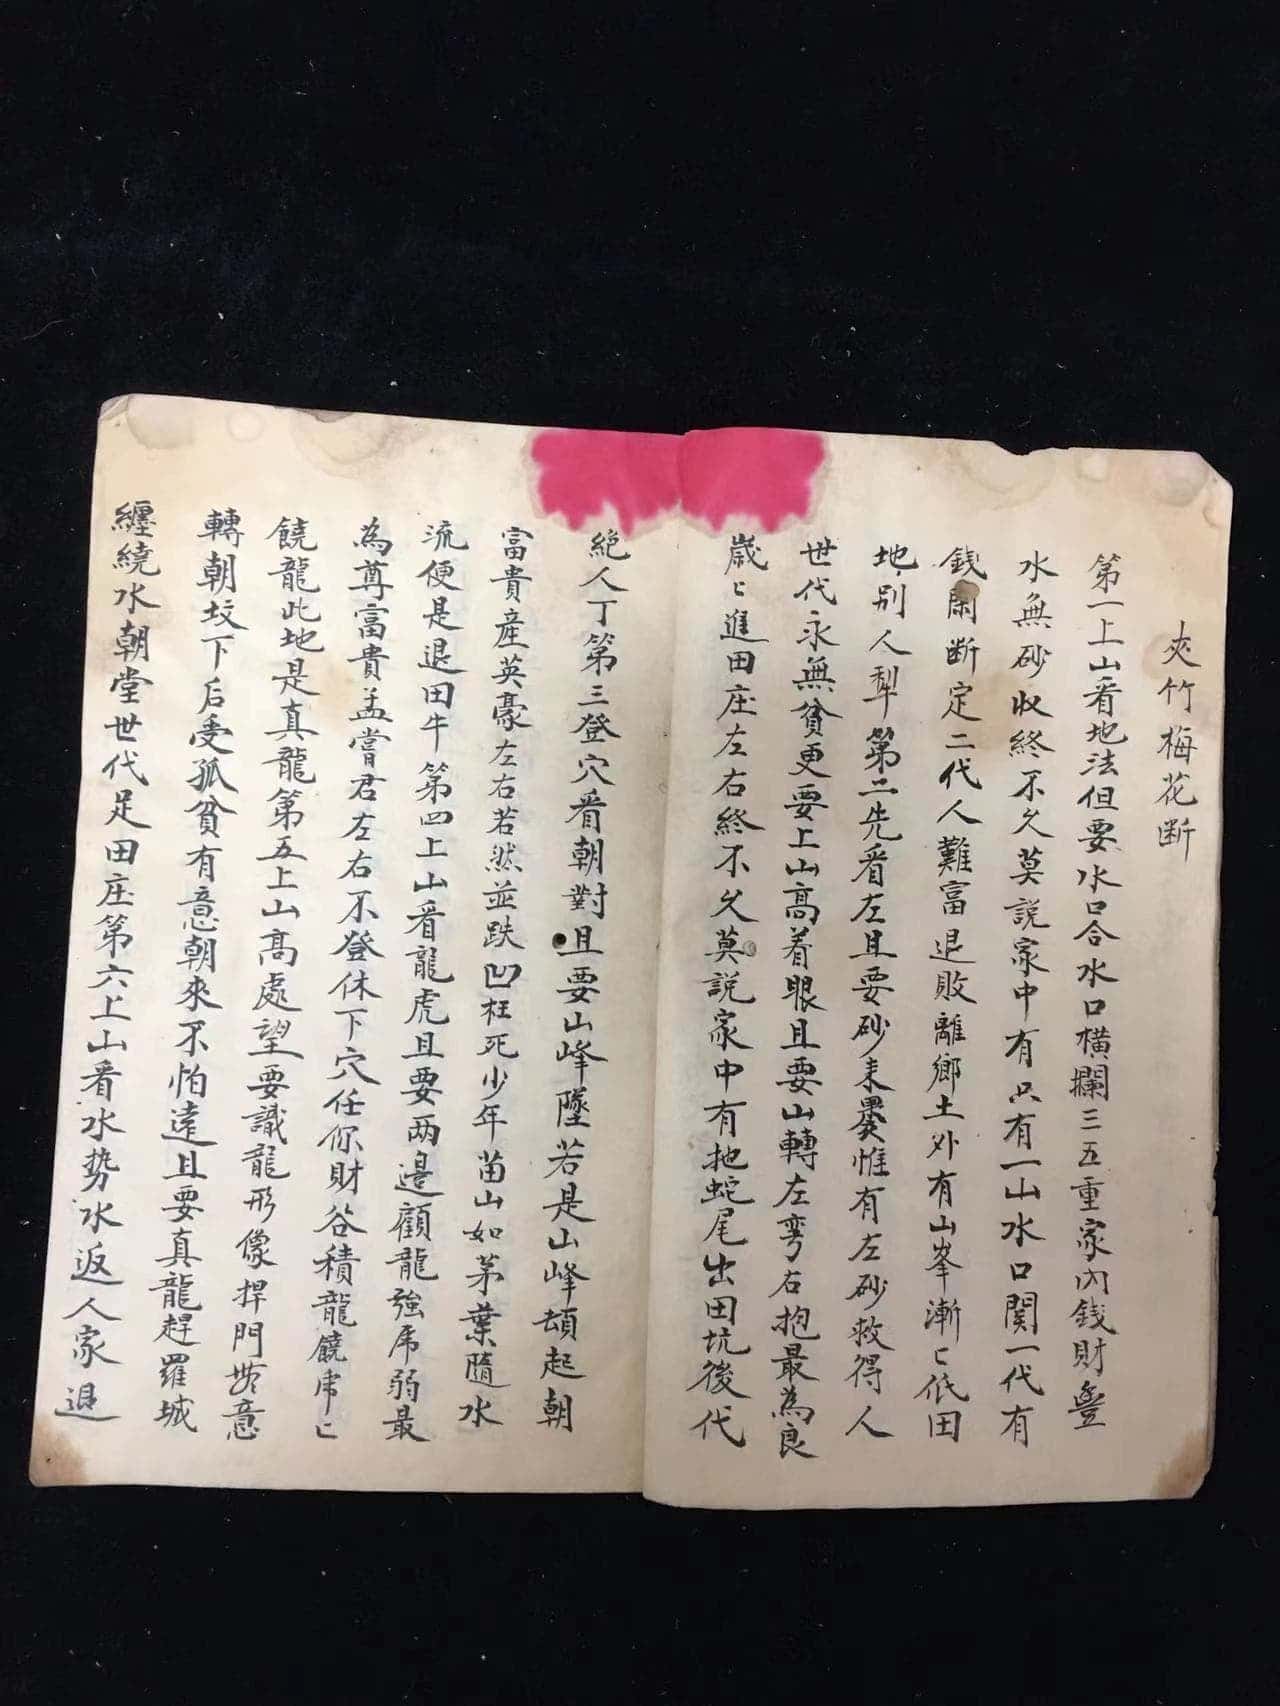 夾竹梅花断
第一上山看地法但要水口合水口横攔三五重家内錢財豊
水無砂收終不久莫説家中有只有一山水口関一代有
錢閑断定二代人難富退敗離鄉土外有山峯漸ヒ低田
地别人犁第二先看左且要砂来裹惟有左砂救得人
世代永無貧更要上山高着眼且要山轉左弯右抱最為良
歳ヒ進田庄左右終不久莫説家中有拖蛇尾出田坑後代
絶人丁第三登穴看朝對且要山峰墜若是山峰頓起朝
富貴産英豪左右若然並跌凹枉死少年苗山如茅葉隨水
流便是退田牛第四上山看龍虎且要两邉顧龍強虎弱最
為尊富貴孟嘗君左右不登休下穴任你財谷積龍饒虎ヒ
饒龍此地是真龍第五上山高處望要識龍形像捍門無意
轉朝坟下后受孤貧有意朝來不怕遠且要真龍趕羅城
纏繞水朝堂世代足田庄第六上山看水势水返人家退